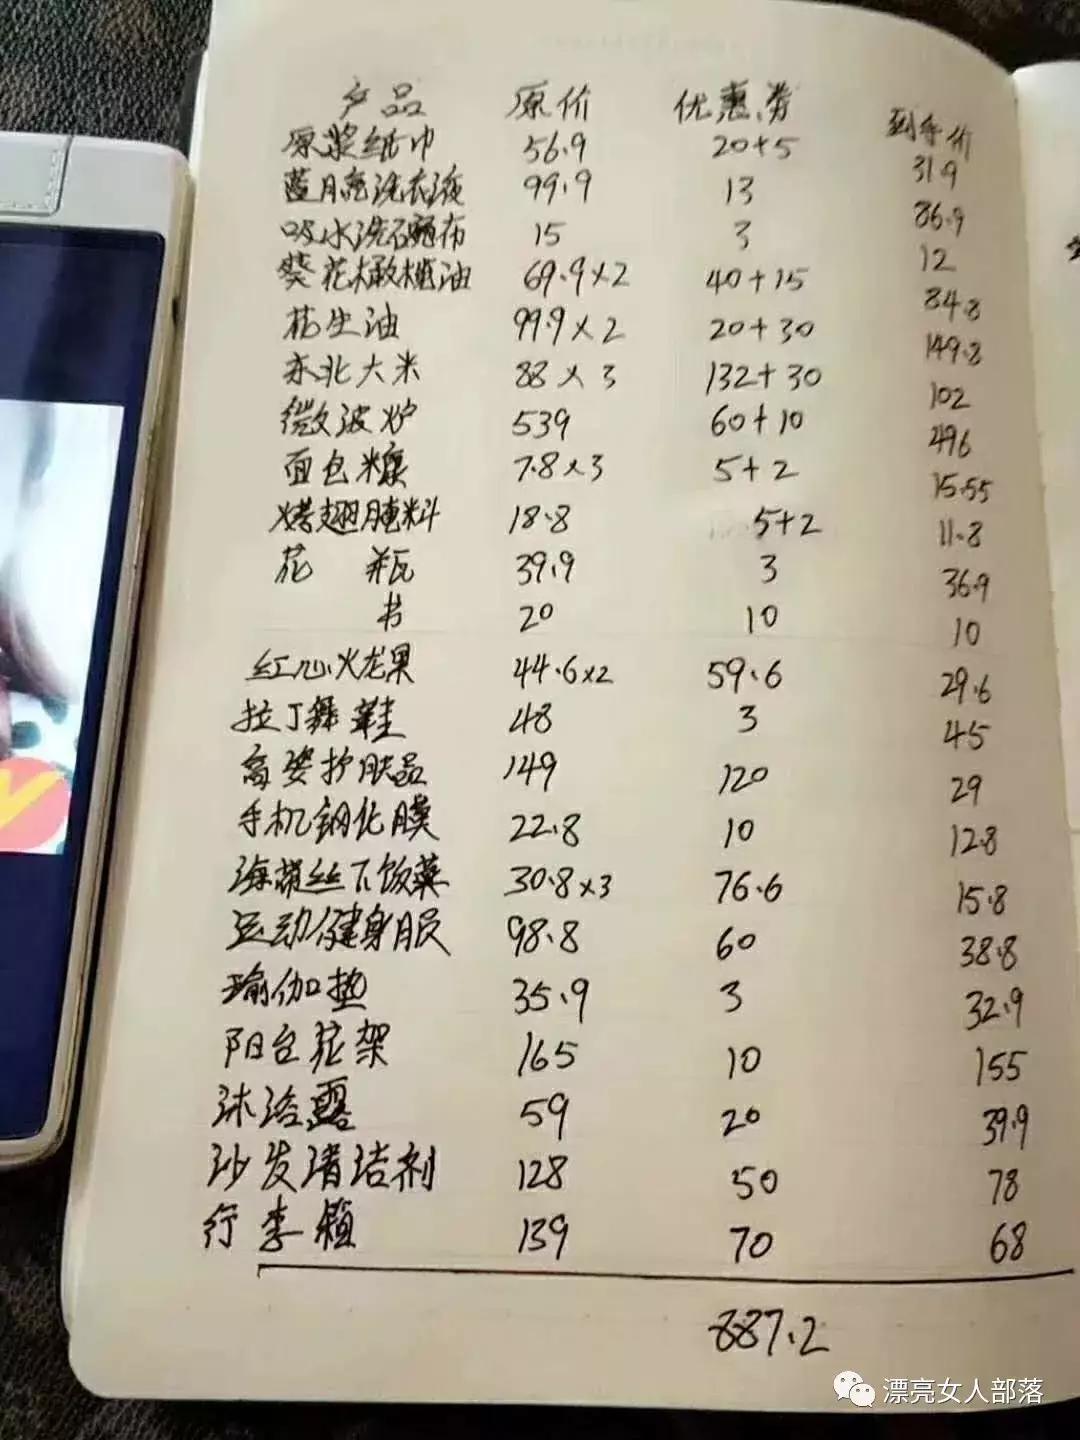 产品 原价 优惠券 到手价
原浆纸巾 56.9 20+5 31.9
蓝月亮洗衣液 99.9 13 86.9
吸水洗碗布 15 3 12
葵花橄榄油 69.9×2 40+15 84.8
花生油 99.9×2 20+30 149.8
东北大米 88×3 132+30 102
微波炉 539 60+10 496
面包糠 7.8×3 5+2 15.55
烤翅腌料 18.8 5+2 11.8
花瓶 39.9 3 36.9
书 20 10 10
红心火龙果 44.6×2 59.6 29.6
拉丁舞鞋 48 3 45
高姿护肤品 149 120 29
手机钢化膜 22.8 10 12.8
海带丝下饭菜 30.8×3 76.6 15.8
运动健身服 98.8 60 38.8
瑜伽垫 35.9 3 32.9
阳台花架 165 10 155
沐浴露 59 20 39.9
沙发清洁剂 128 50 78
行李箱 139 70 68
887.2
漂亮女人部落